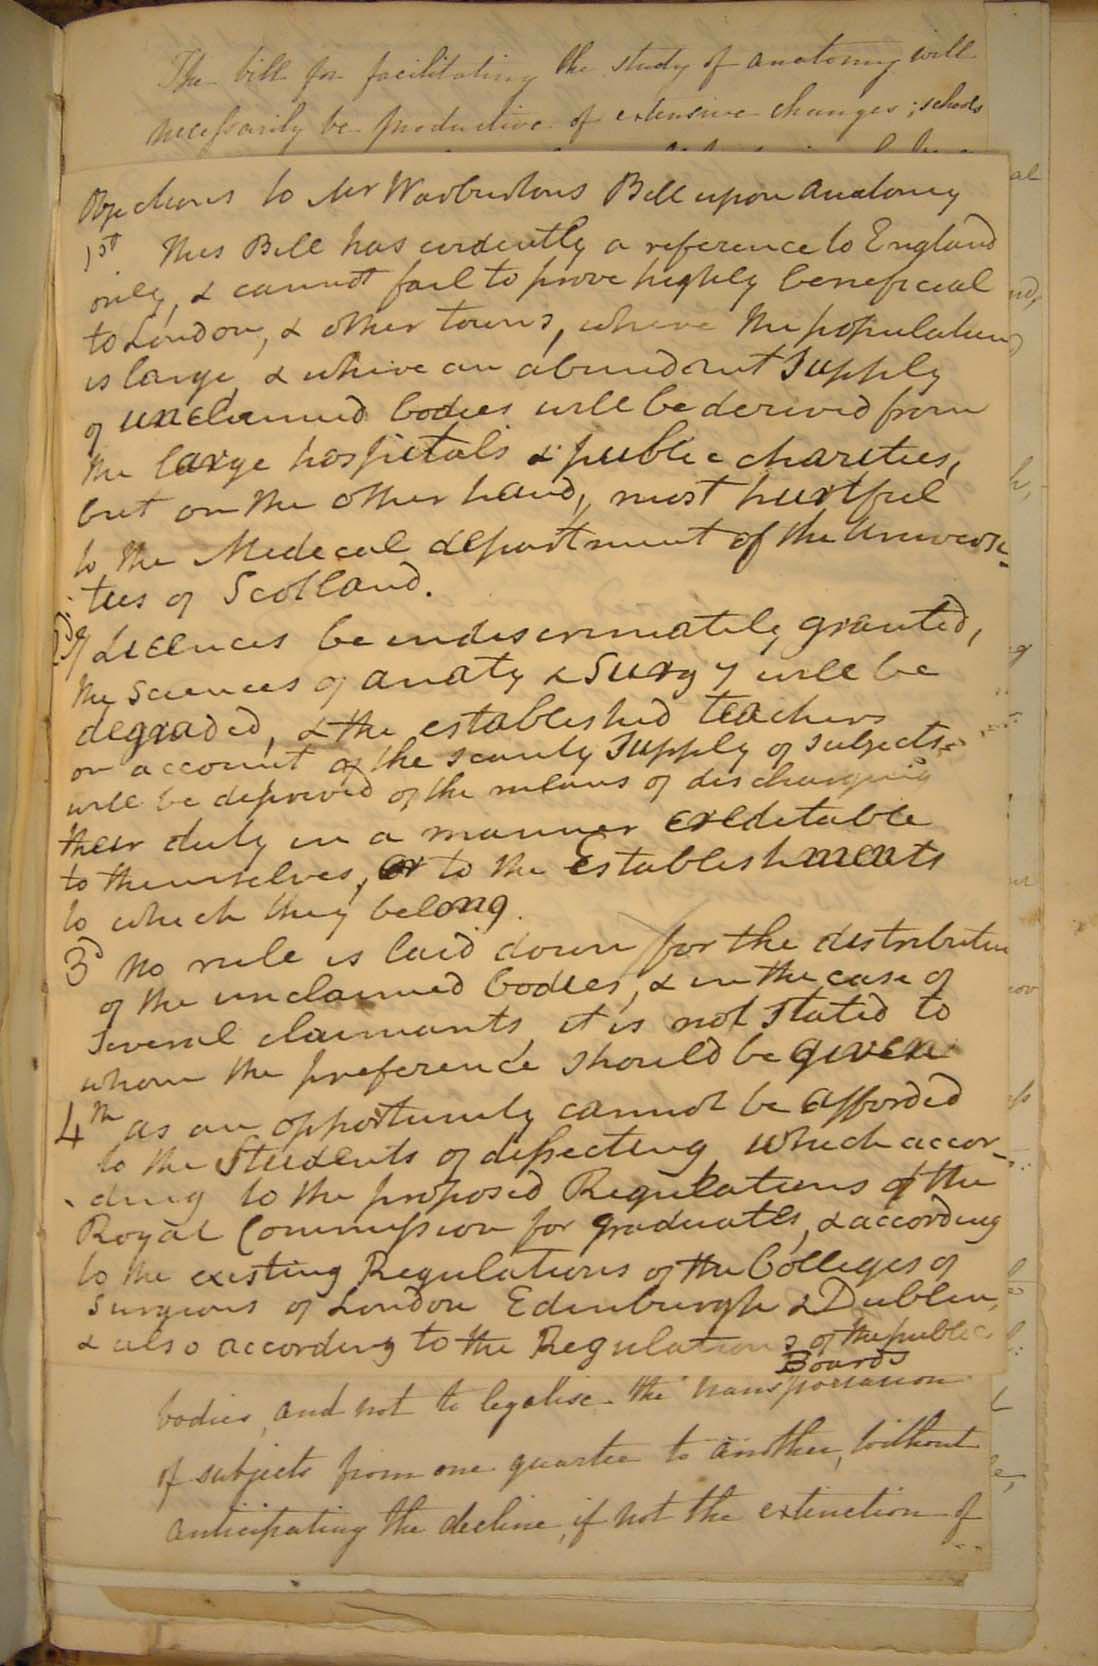 The bill for facilitating the study of anatomy will
necessarily be productive of extensive changes; schools
Objections to Mr Warburtons Bill upon anatomy
1st This Bill has evidently a reference to England
only, & cannot fail to prove highly beneficial
to London, & other towns, where the population
is large, & where an abundant supply
of unclaimed bodies will be derived from
the large hospitals & public charities,
but on the other hand, most hurtful
to the Medical department of the Universi-
ties of Scotland.
2d If Licences be indiscriminately granted,
the Sciences of anaty & Surgy will be
degraded, & the established teachers
on account of the scanty supply of subjects
will be deprived of the means of discharging
their duty in a manner creditable
to themselves, or to the Establishments
to which they belong.
3d No rule is laid down for the distribution
of the unclaimed bodies, & in the case of
several claimants, it is not stated to
whom the preference should be given
4th as an opportunity cannot be afforded
to the Students of dissecting, which accor-
ding to the proposed Regulations of the
Royal Commission for graduates, & according
to the existing Regulations of the Colleges of
Surgeons of London Edinburgh & Dublin,
& also according to the Regulations of the public
Boards
bodies, and not to legalise the transportation
of subjects from one quarter to another, without
anticipating the decline, if not the extinction of